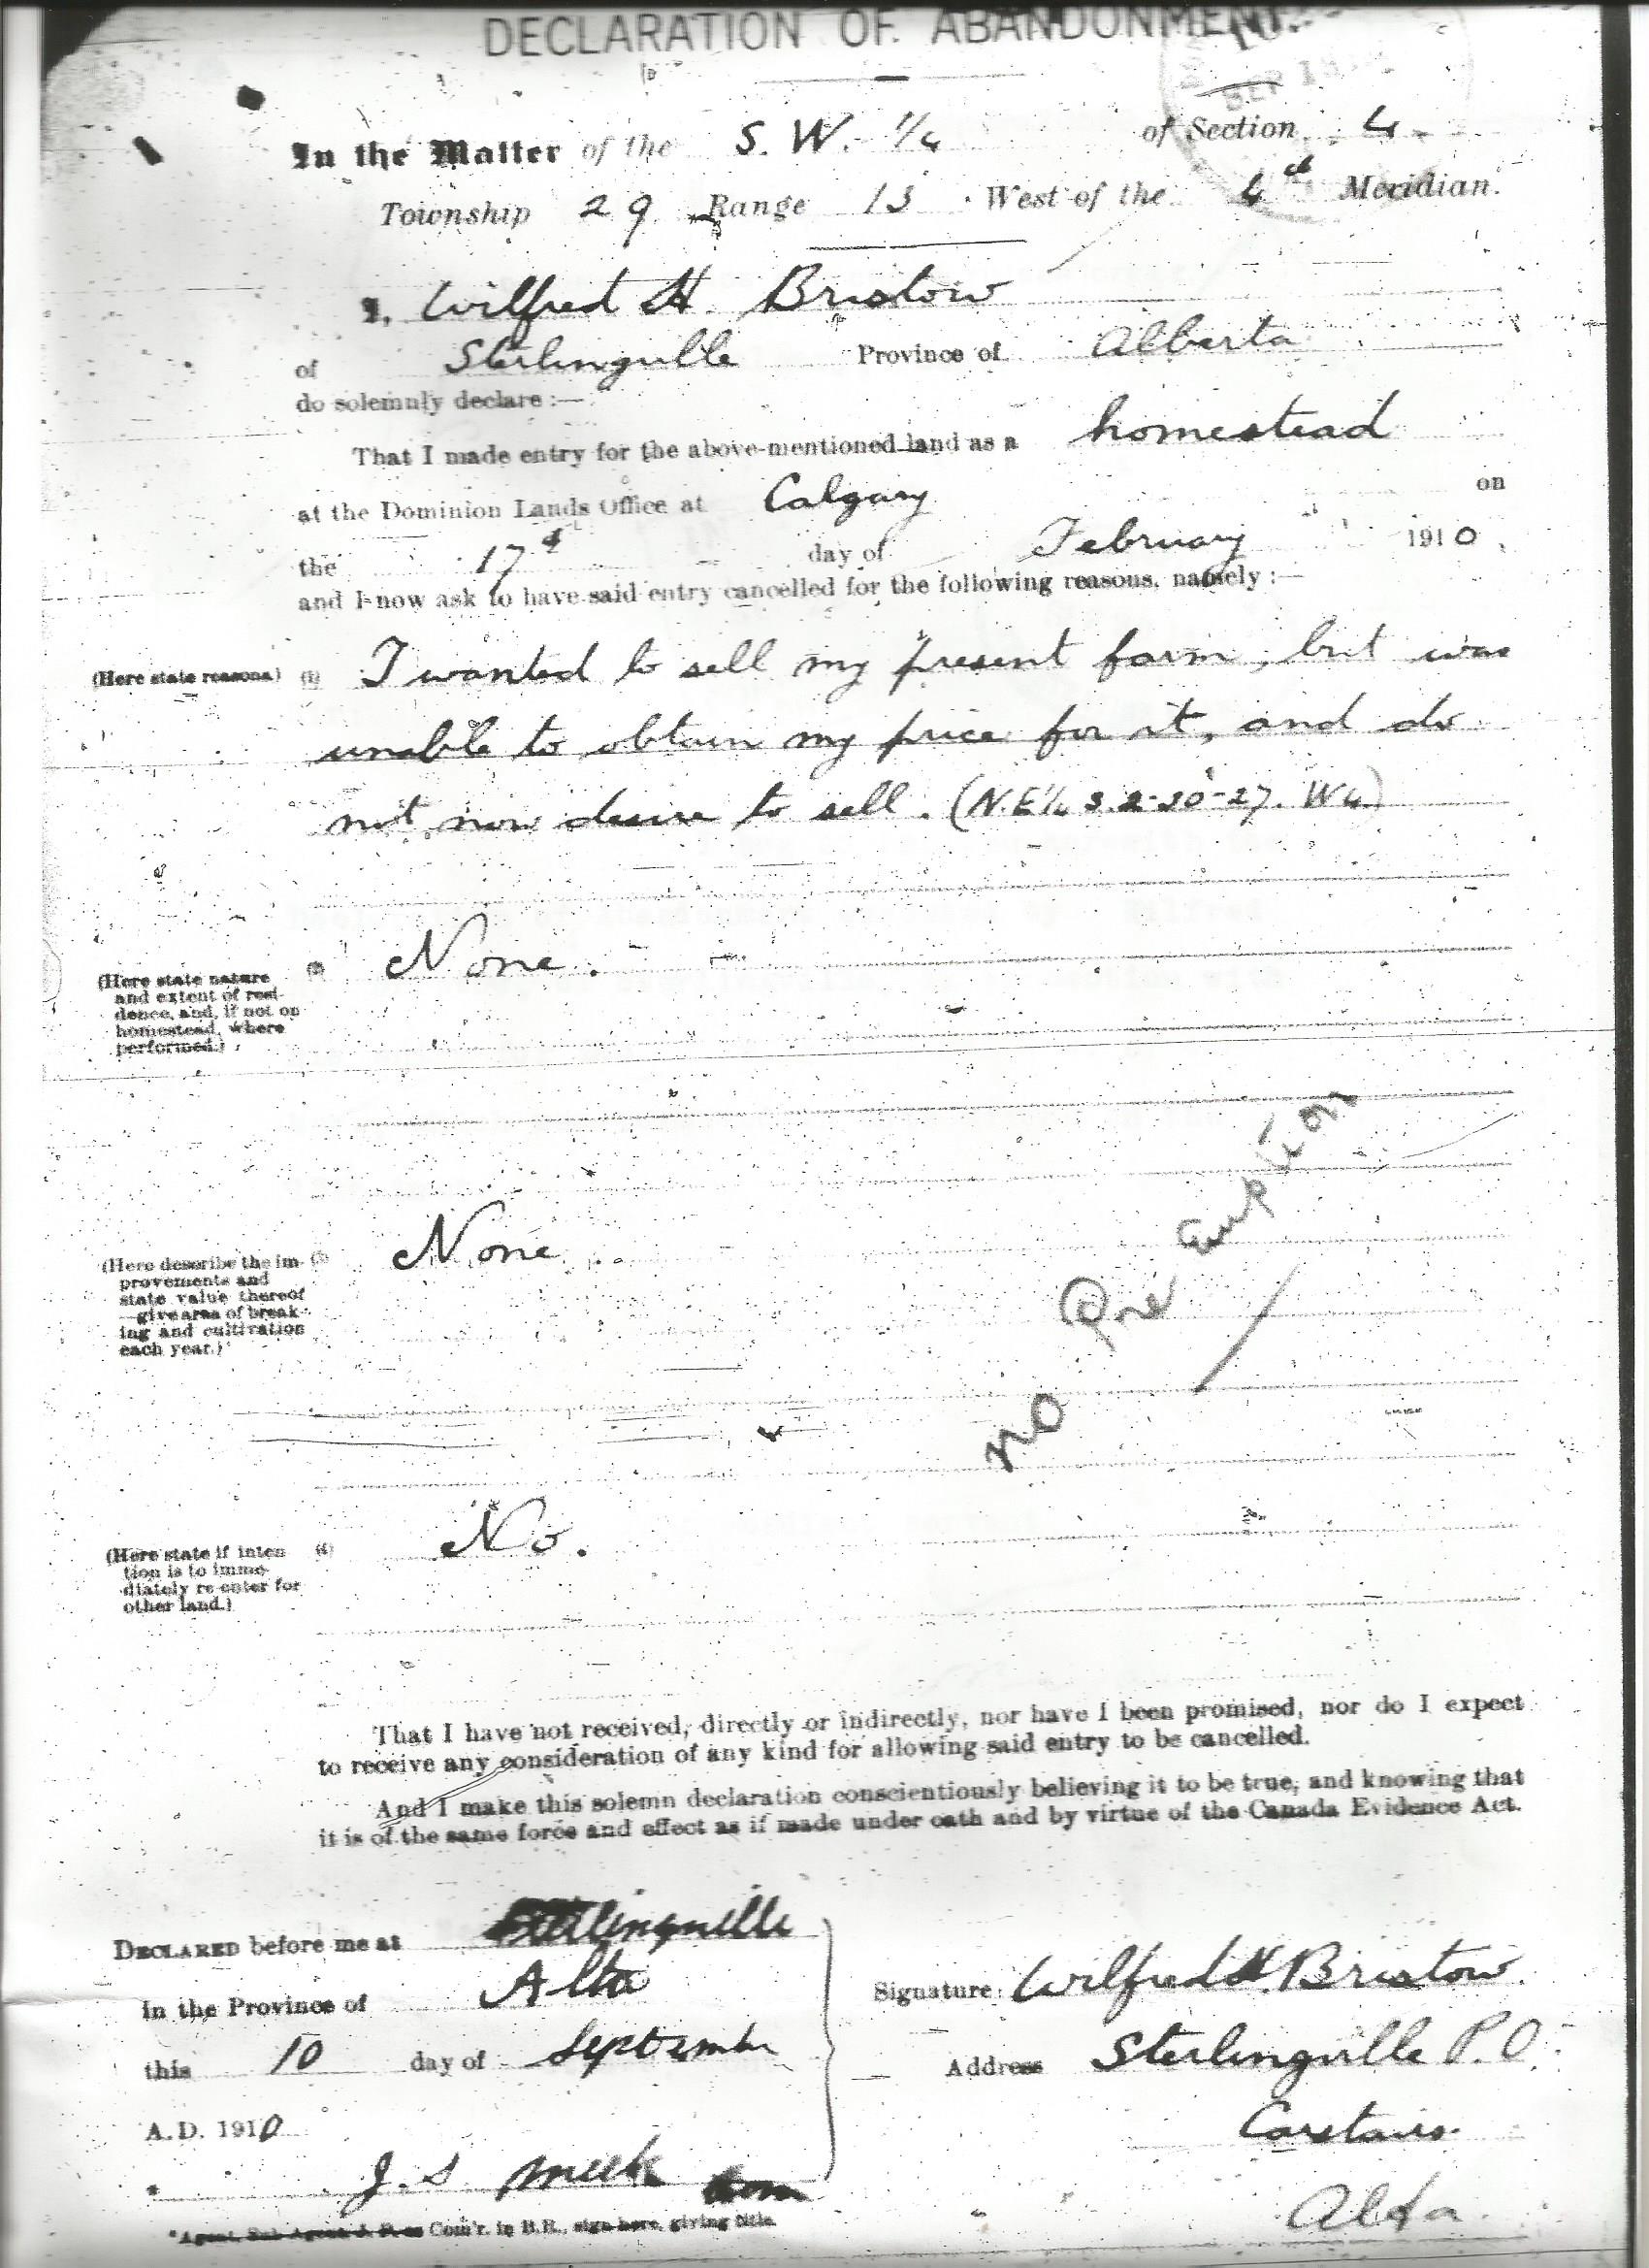 DECLARATION OF ABANDONMENT.
SEP 1
In the Matter of the S. W. 1/4 of Section 4
Township 29 Range 13 West of the 4th Meridian.
I, Wilfred H. Bristow
of Sterlingville Province of Alberta
do solemnly declare :—
That I made entry for the above-mentioned land as a homestead
at the Dominion Lands Office at Calgary on
the 17th day of February 1910,
and I now ask to have said entry cancelled for the following reasons, namely :—
(Here state reasons) (1) I wanted to sell my present farm, but was
unable to obtain my price for it, and do
not now desire to sell. (N.E 1/4 S. 2-30-27. W4.)
(Here state nature (2) None.
and extent of resi-
dence, and, if not on
homestead, where
performed.)
(Here describe the im- (3) None
provements and
state value thereof
give area of break-
ing and cultivation
each year.)
no Pre Emption
(Here state if inten (4) No.
tion is to imme-
diately re-enter for
other land.)
That I have not received, directly or indirectly, nor have I been promised, nor do I expect
to receive any consideration of any kind for allowing said entry to be cancelled.
And I make this solemn declaration conscientiously believing it to be true, and knowing that
it is of the same force and effect as if made under oath and by virtue of the Canada Evidence Act.
DECLARED before me at Sterlingville
in the Province of Alta
this 10 day of September
A.D. 1910
J. S Meek Com
*Agent, Sub-Agent J. P. or Com'r. in B.R., sign here, giving title.
Signature Wilfred H. Bristow.
Address Sterlingville P.O.
Carstairs.
Alta.